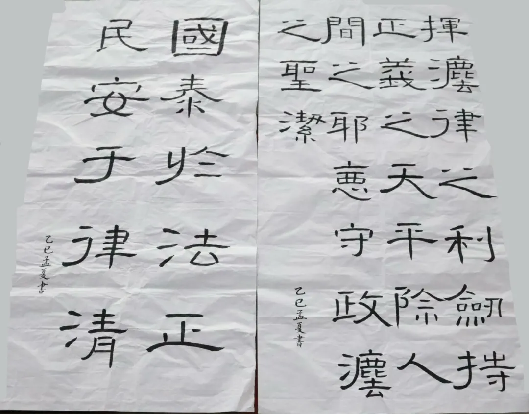 揮灋律之利劒持
正義之天平除人
間之耶惡守政灋
之聖潔
乙巳孟夏書
國泰於法正
民安于律清
乙巳孟夏書